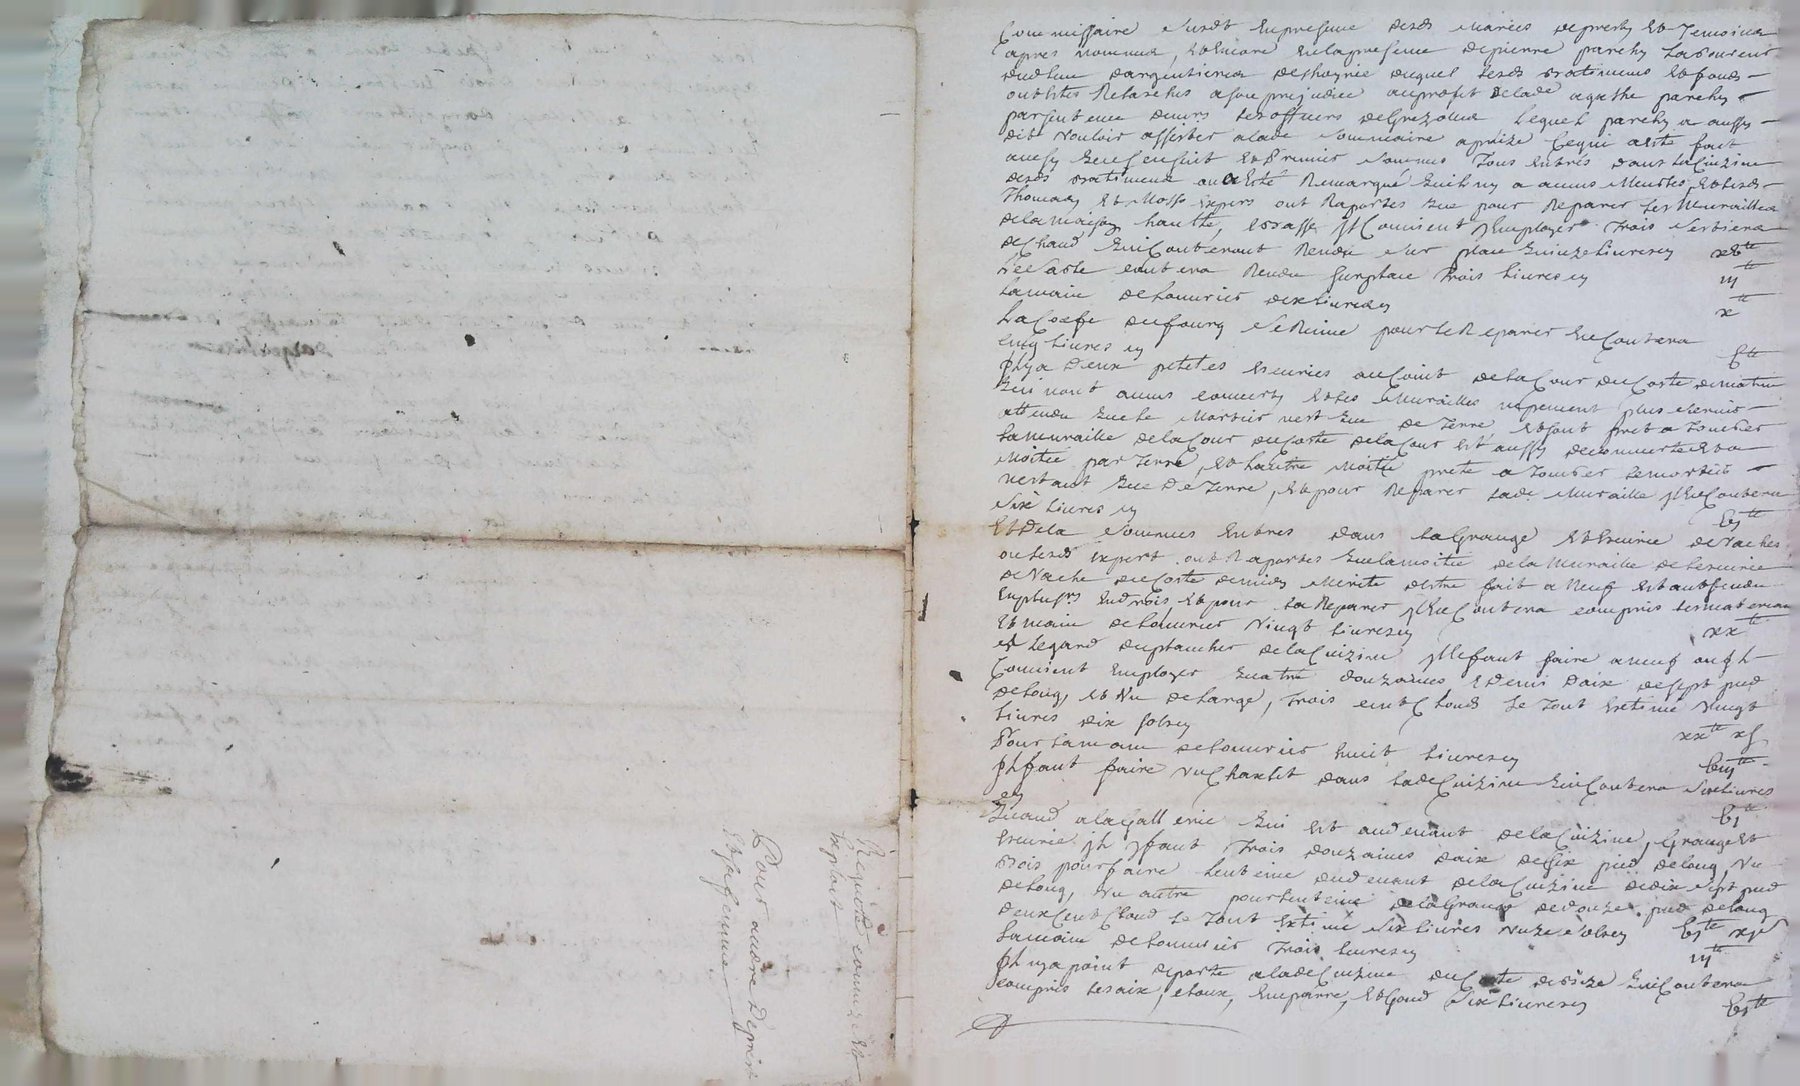 Requeste commize et
exploit
Pour andre Depresk
Et sa famme
Commissaire susdt en presence desds mariés depresk et Temoins
apres nommes, et encore en la presence de pierre parchy laboureur
dudt lieu dargentieres deshoyrie duquel lesds batiments et fonds
ont estes Relasches a son prejudice au profit de lade agathe parchy
par sentence de mrs les officiers de Grezolles lequel parchy a aussy
dit vouloir assister a lade sommaire aprize ce qui a este fait
ainsy que s'ensuit et Premier sommes Tous entrés dans la Cuizine
desds batiments ou a Esté Remarqué quil ny a aucuns Meubles, et lesds
Thomas et Mosse experts ont Raportes que pour Reparer les Murailles
de la maison hautte, et basse jl Convient y Employer Trois
de Chaud qui Couteront Rendu sur place quinze livres cy xvtt
Le sable coutera Rendu sur place trois livres cy iijtt
La main de Louvrier dix livres cy xtt
La Coefe du fourg se Reine pour le Reparer il en Coutera
cinq livres cy vtt
Jl y a Deux petites Ecuries au Coint de la Cour du Coste de matin
qui n'ont aucuns couverts et les Murailles ne peuvent plus servir
attendu que le Mortier n'est que de Terre et sont pret a Tomber
La muraille de la Cour du Coste de la Cour est aussy decouverte et a
Moitie par Terre, et l'autre Moitié prete a Tomber le mortier
n'estant que De Terre, et pour Reparer lade Muraille jl en Coutera
Six livres cy vjtt
Et De la sommes Entres dans la Grange et Ecurie de Vaches
ou lesds Expert ont Raportes que la moitie de la Muraille de l'ecurie
de Vache du Coste de midy Merite d'estre fait a Neuf estant fendu
en plusrs Endrois, et pour la Reparer jl en Coutera compris les materiaux
et main de Louvrier Vingt livres cy xxtt
a Legard du plancher de la Cuizine jl le faut faire a neuf ou jl
Convient Employer quatre douzaines et Demis Daix de sept pied
de long, et Un de large, trois cent Clouds le Tout Estimé Vingt
livres dix sols cy xxtt xs
Pour la main de Louvrier huit livres cy viijtt
Jl faut faire Un Chaslit dans lade Cuizine qui Coutera six livres
cy vjtt
Quand a la gallerie qui est au devant de la Cuizine, Grange et
Ecurie jl y faut Trois douzaines Daix de six pied de long, Un
Bois pour faire au devant de la Cuizine de dix sept pied
de long, Un autre pour de la Grange de douze pied de long
Deux Cent Cloud le Tout Estimé six livres Unze sols cy vjtt xjs
La main de Louvrier Trois livres cy iijtt
Jl ny a point de porte a lade Cuizine du Coste de bize qui Coutera
compris les aix, cloux, Emparre, et Gond Six livres cy vjtt